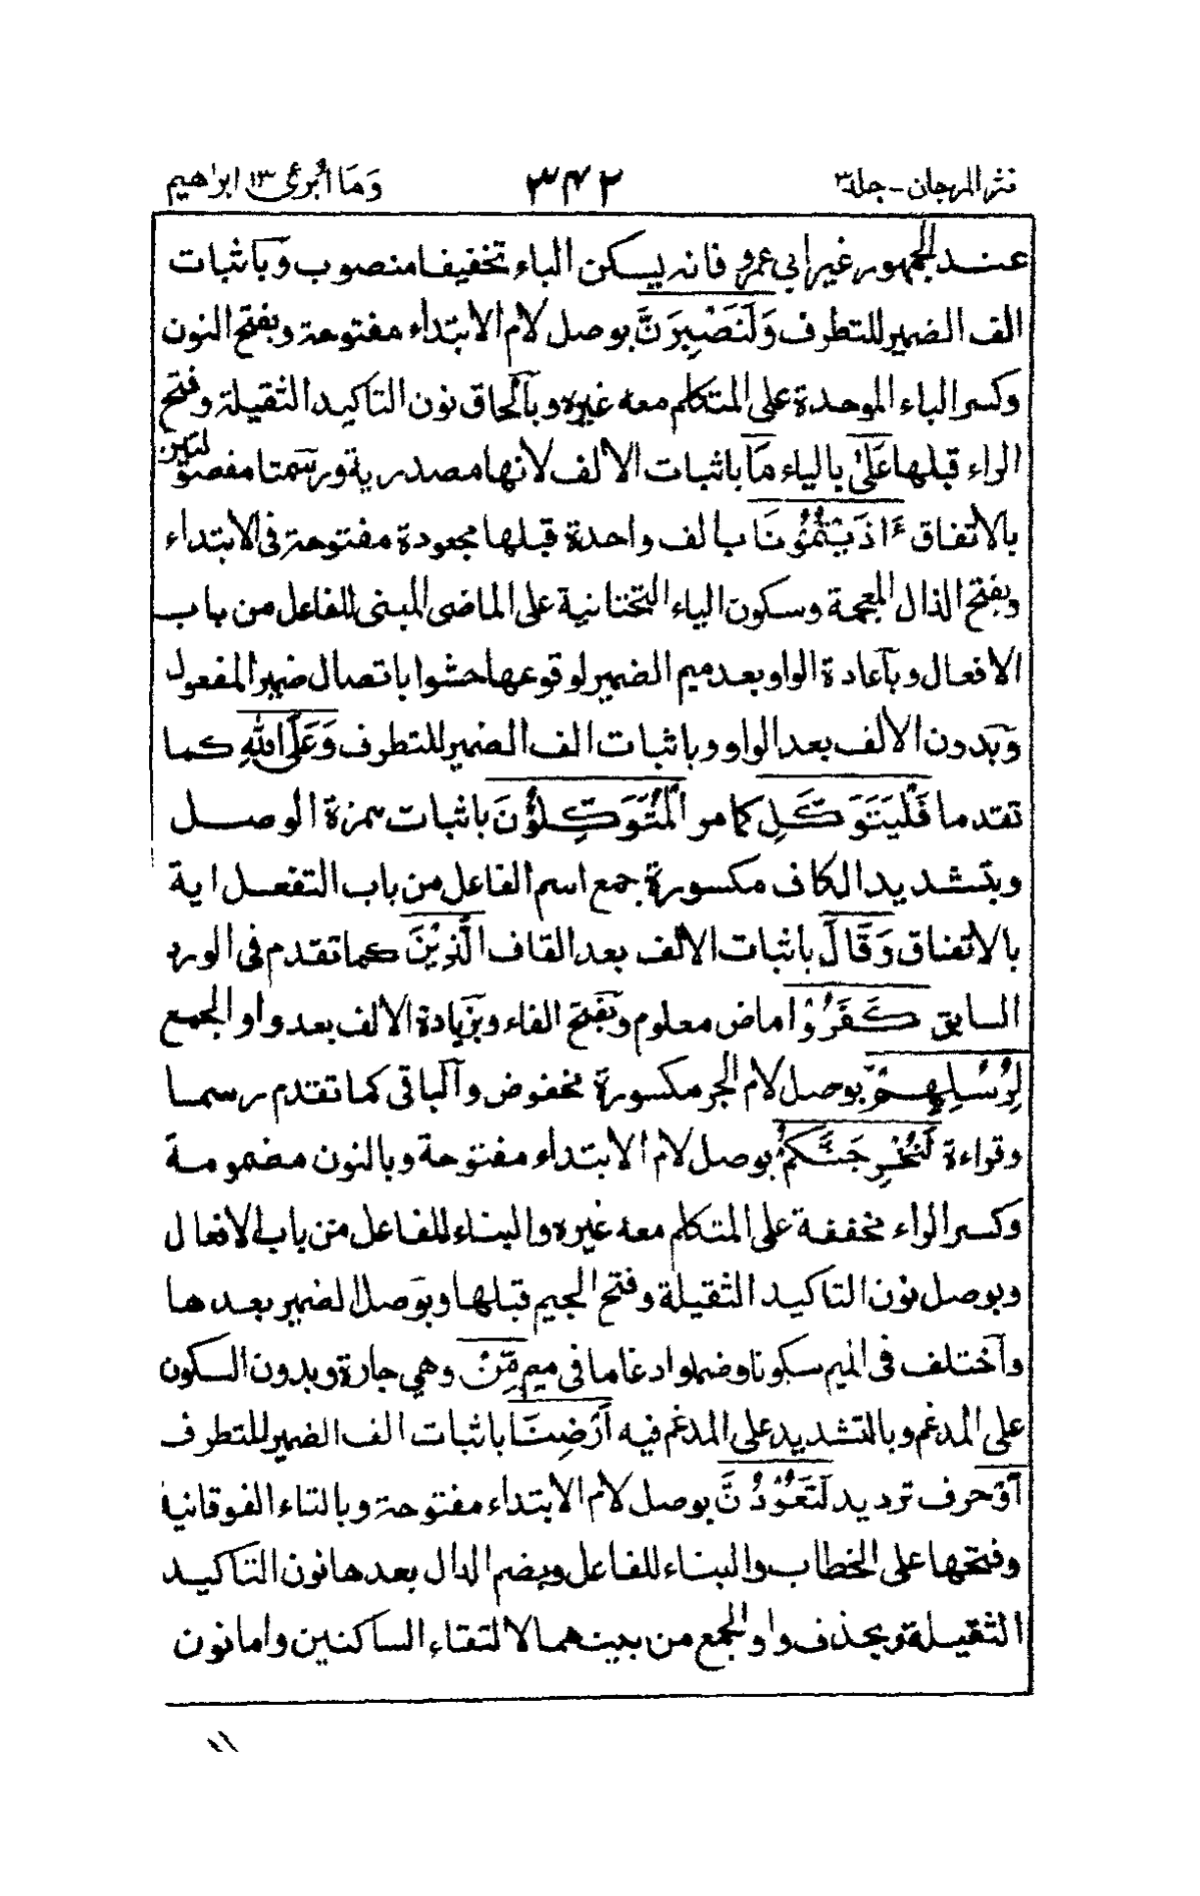 نثر المرجان - جلد ٣
٣٤٢
وَمَا أُبَرِّئُ ١٣ ابراهيم
عند الجمهور غير ابي عمرو فانه يسكن الباء تخفيفا منصوب وبَاثبات
الف الضمير للتطرف وَلَنَصْبِرَنَّ بوصل لام الابتداء مفتوحة وبفتح النون
وكسر الباء الموحدة على المتكلم معه غيره وبآلحاق نون التاكيد الثقيلة وفتح
الراء قبلها عَلٰى بالياء مَا باثبات الالف لانها مصدرية ورسمتا مفصولتين
بالاتفاق ءَاذَيْتُمُوْنَا بالف واحدة قبلها مجعودة مفتوحة فى الابتداء
وبفتح الذال المعجمة وسكون الياء التحتانية على الماضى المبنى للفاعل من باب
الافعال وبآعادة الواو بعد ميم الضمير لوقوعها حشوا باتصال ضمير المفعول
وبَدون الالف بعد الواو وباثبات الف الضمير للتطرف وَعَلَى اللهِ كما
تقدم ما فَلْيَتَوَكَّلِ كما مر الْمُتَوَكِّلُوْنَ باثبات همزة الوصل
وبتشديد الكاف مكسورة جمع اسم الفاعل من باب التفعل اية
بالاتفاق وَقَالَ باثبات الالف بعد القاف الَّذِيْنَ كما تقدم فى الورد
السابق كَفَرُوْا ماض معلوم وبَفتح الفاء وبزَيادة الالف بعد واو الجمع
لِرُسُلِهِمْ بوصل لام الجر مكسورة مخفوض وآلباقى كما تقدم رسما
وقراءة لَنُخْرِجَنَّكُمْ بوصل لام الابتداء مفتوحة وبالنون مضمومة
وكسر الراء مخففة على المتكلم معه غيره والبناء للفاعل من باب الافعال
وبوصل نون التاكيد الثقيلة وفتح الجيم قبلها وبوَصل الضمير بعدها
وآختلف فى الميم سكونا وضما وادغاما فى ميم مِّنْ وهي جارة وبدون السكون
على المدغم وبالتشديد على المدغم فيه اَرْضِنَا باثبات الف الضمير للتطرف
اَوْ حرف ترديد لَتَعُوْدُنَّ بوصل لام الابتداء مفتوحة وبالتاء الفوقانية
وفتحها على الخطاب والبناء للفاعل وبضم الدال بعدها نون التاكيد
الثقيلة وبحذف واو الجمع من بينهما لالتقاء الساكنين واما نون